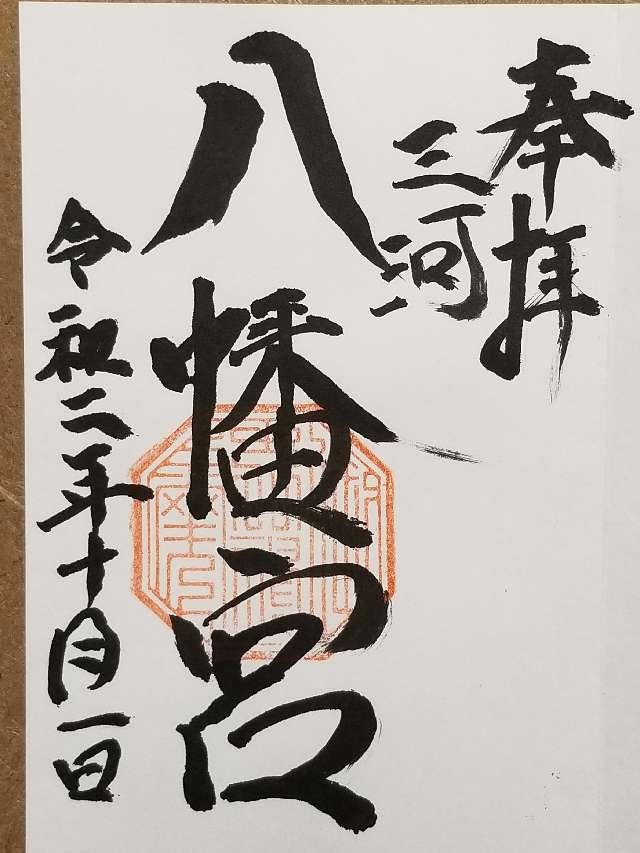 奉拝
三河
八幡宮
令和二年十月一日